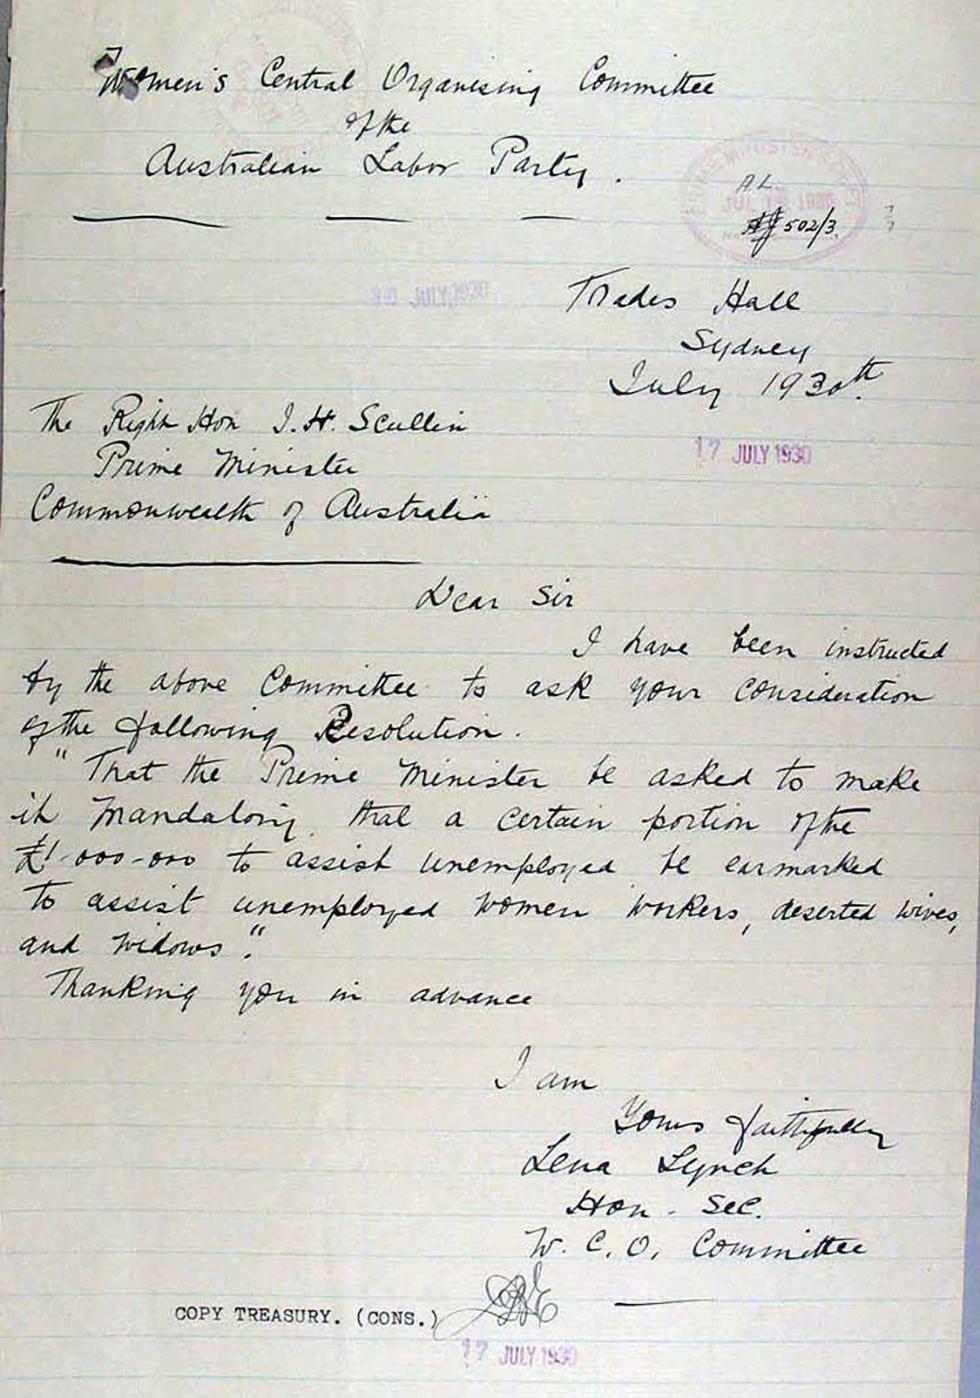 Women's Central Organising Committee
of the
Australian Labor Party.
PRIME MINISTER'S
JUL 1930
AL
502/3.
JULY, 1930
Trades Hall
Sydney
July 1930th.
17 JULY 1930
The Right Hon J. H. Scullin
Prime Minister
Commonwealth of Australia
Dear Sir
I have been instructed
by the above Committee to ask your consideration
of the following Resolution.
"That the Prime Minister be asked to make
it Mandatory that a certain portion of the
£1-000-000 to assist unemployed be earmarked
to assist unemployed women workers, deserted wives,
and widows".
Thanking you in advance
I am
Yours faithfully
Lena Lynch
Hon. Sec.
W. C. O. Committee
COPY TREASURY. (CONS.)
17 JULY 1930